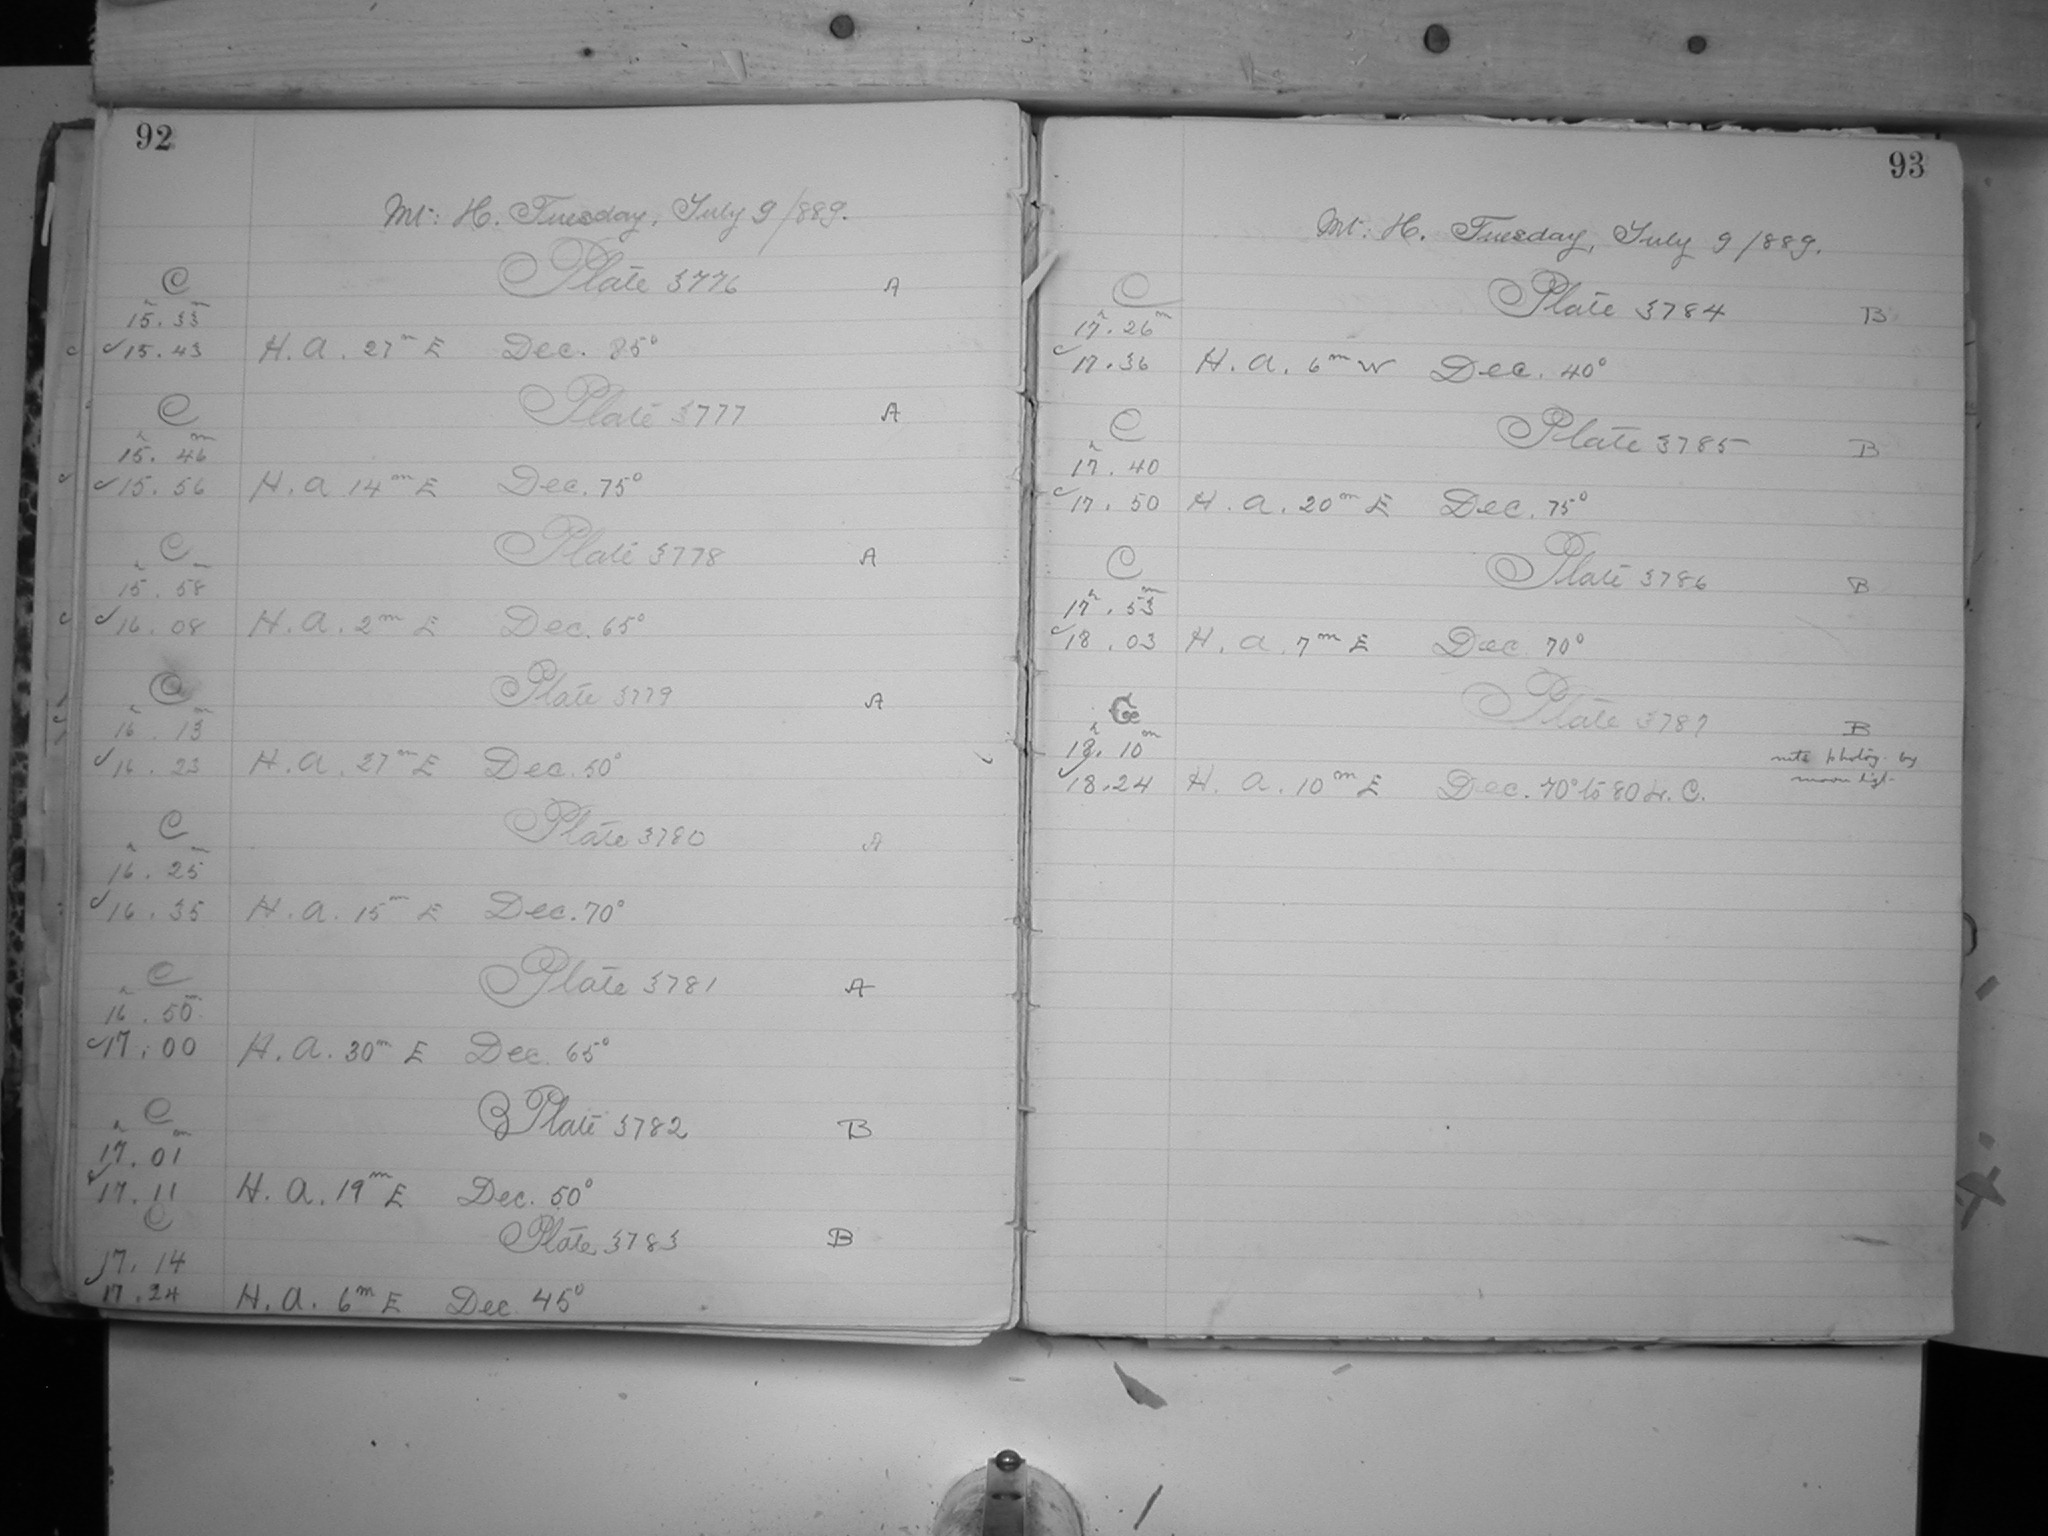 92
Mt. H. Tuesday, July 9/889.
C Plate 3776 A
15h. 33m
✓15. 43 H. A. 27m E Dec. 85°
C Plate 3777 A
15h. 46m
✓15. 56 H. A 14m E Dec. 75°
C Plate 3778 A
15h. 58m
✓16. 08 H. A. 2m E Dec. 65°
C Plate 3779 A
16h 13m
✓16. 23 H. A. 27m E Dec. 50°
C Plate 3780 A
16h. 25m
✓16. 35 H. A. 15m E Dec. 70°
C Plate 3781 A
16h. 50m
✓17. 00 H. A. 30m E Dec. 65°
C Plate 3782 B
17h. 01m
✓17. 11 H. A. 19m E Dec. 50°
C Plate 3783 B
17. 14
✓17. 24 H. A. 6m E Dec 45°
93
Mt. H. Tuesday, July 9/889.
C Plate 3784 B
17h. 26m
✓17. 36 H. A. 6m W Dec. 40°
C Plate 3785 B
17h. 40
✓17. 50 H. A. 20m E Dec. 75°
C Plate 3786 B
17h. 53m
✓18. 03 H. A. 7m E Dec. 70°
Plate 3787 B
18h. 10m
✓18. 24 H. A. 10m E Dec. 70° to 80 L. C.
photog. by
moon